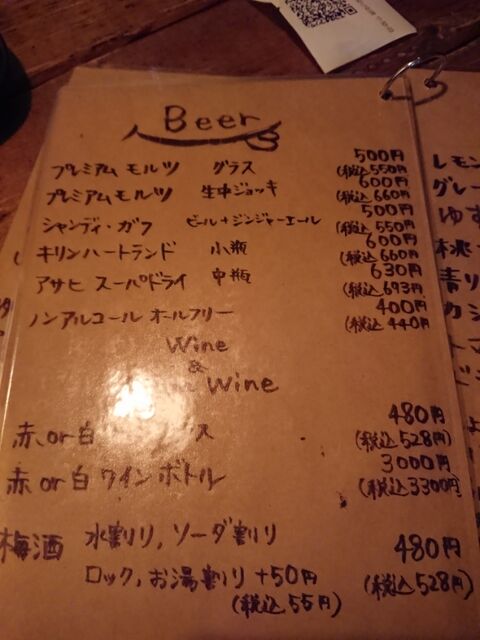 Beer
プレミアム モルツ グラス 500円
(税込 550円
プレミアム モルツ 生中ジョッキ 600円
(税込 660円
シャンディ・ガフ ビール+ジンジャーエール 500円
(税込 550円
キリンハートランド 小瓶 600円
(税込 660円
アサヒ スーパドライ 中瓶 630円
(税込 693円
ノンアルコール オールフリー 400円
(税込 440円
Wine
&
Wine
赤 or 白 ス 480円
(税込 528円)
赤 or 白 ワイン ボトル 3000円
(税込 3300円)
梅酒 水割り, ソーダ割り 480円
ロック, お湯割り +50円 (税込 528円)
(税込 55円)
レモン
グレー
ゆず
桃
青り
カシ